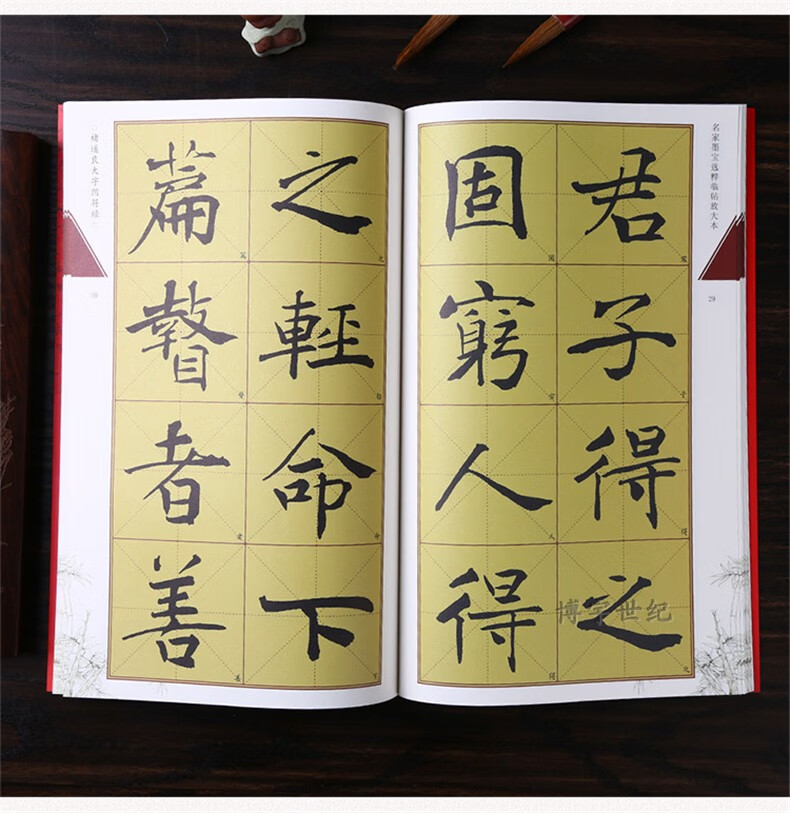 名家墨宝选粹临钻放大本
29
君子得之
固窮人得
之輕命下
篇瞽者善
褚遂良大字阴符经
博宇世纪